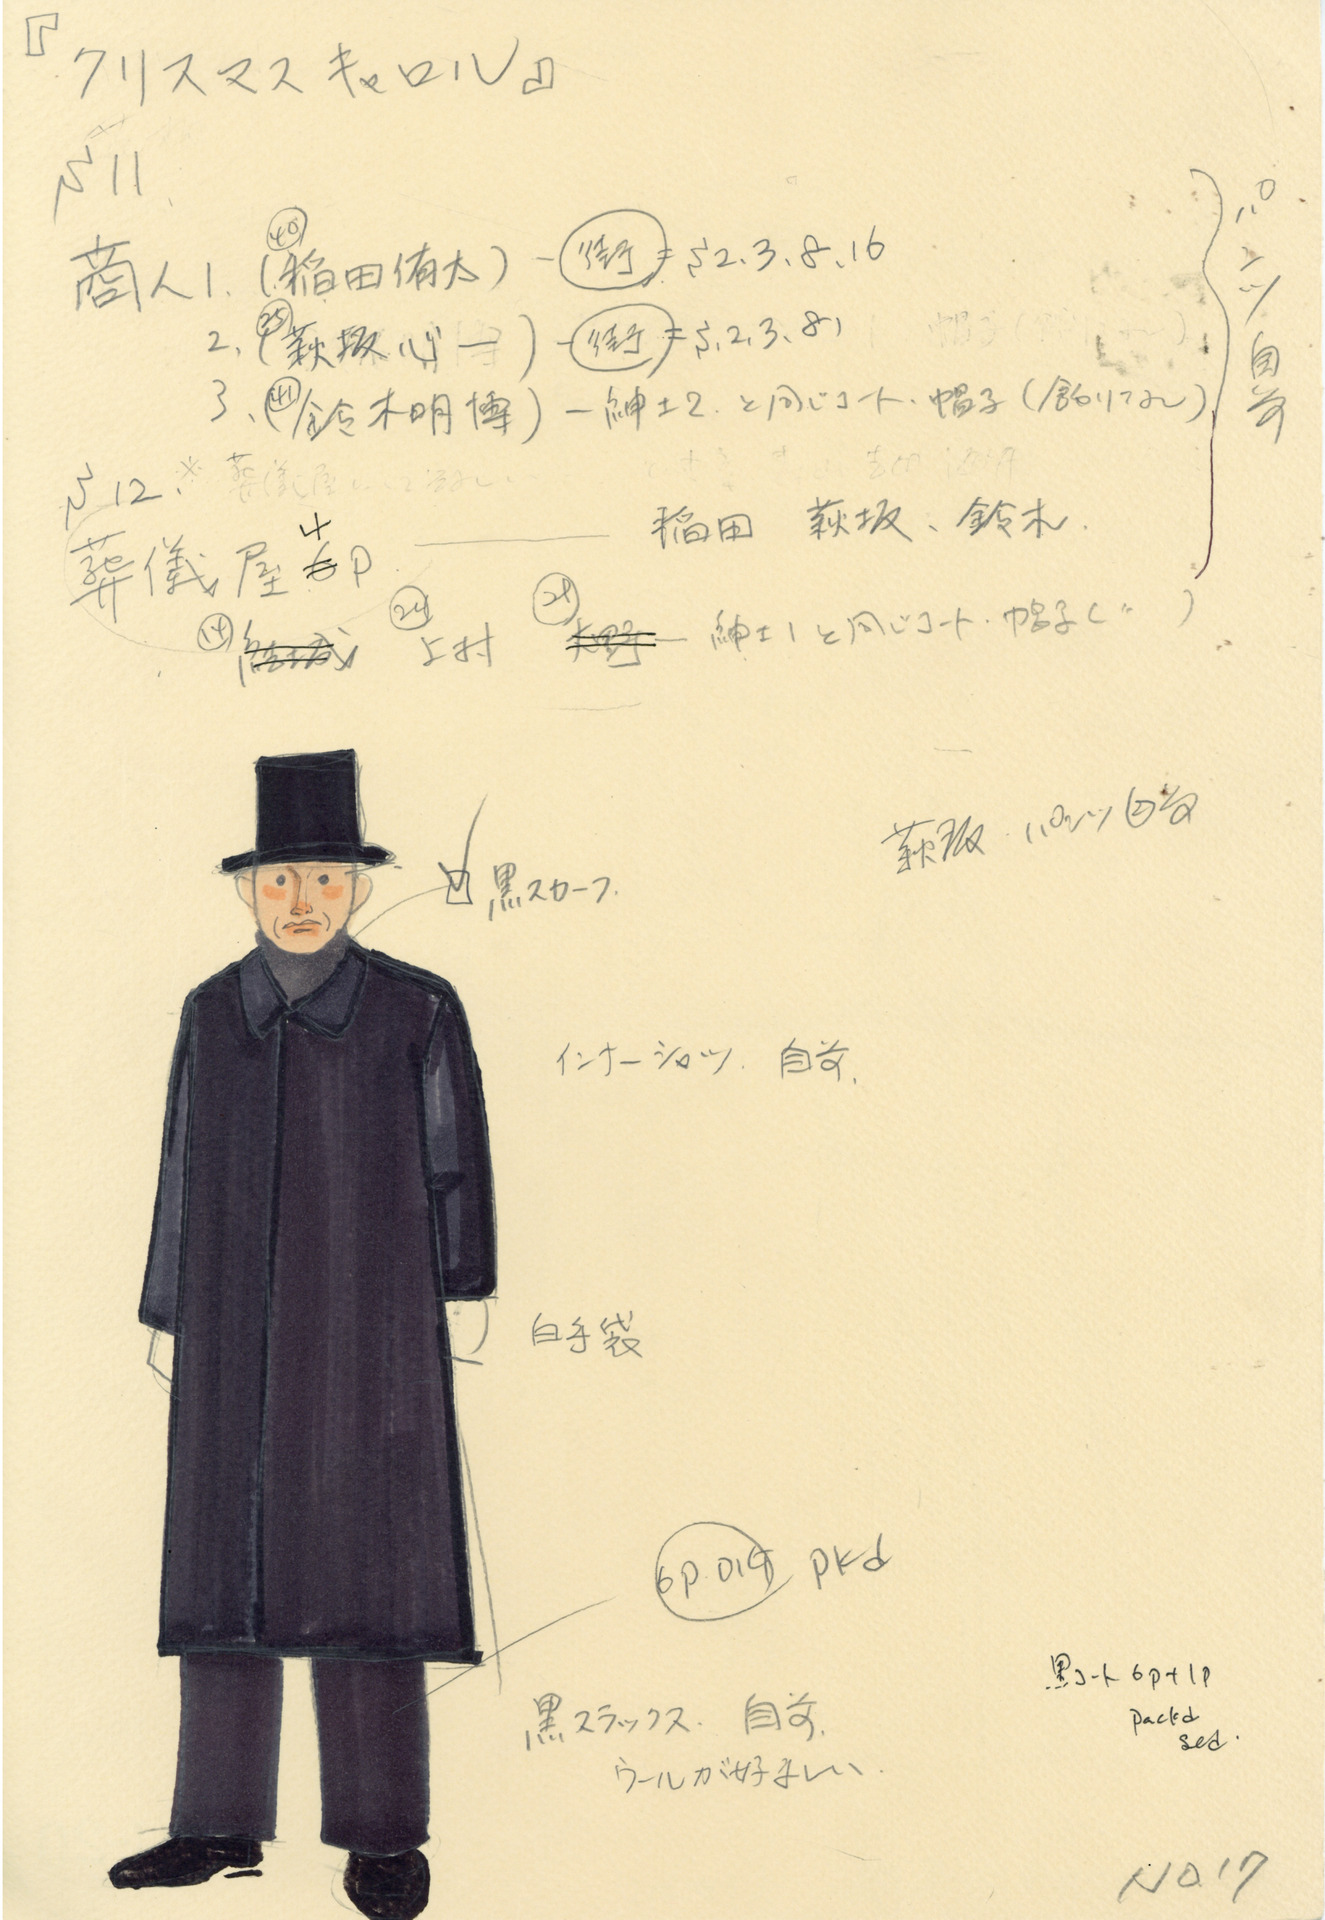 『クリスマスキャロル』
S11.
パンツ自前
㊵
商人1.(稲田侑太)-街=S2.3.8.16
㉟
2.(萩坂心一)-街=S.2.3.8
㊶
3.(鈴木明博)-紳士2.と同じコート.帽子(飾りなし)
S12.※葬儀屋
葬儀屋 4P 稲田 萩坂、鈴木.
⑭ ㉔ ㉙
結城 上村 大野 - 紳士1と同じコート.帽子(〃)
萩坂 パンツ自前
黒スカーフ.
インナーシャツ. 自前.
白手袋
6P. pkd
黒コート 6p+1p
packed
sed.
黒スラックス. 自前.
ウールが好ましい.
NO.17